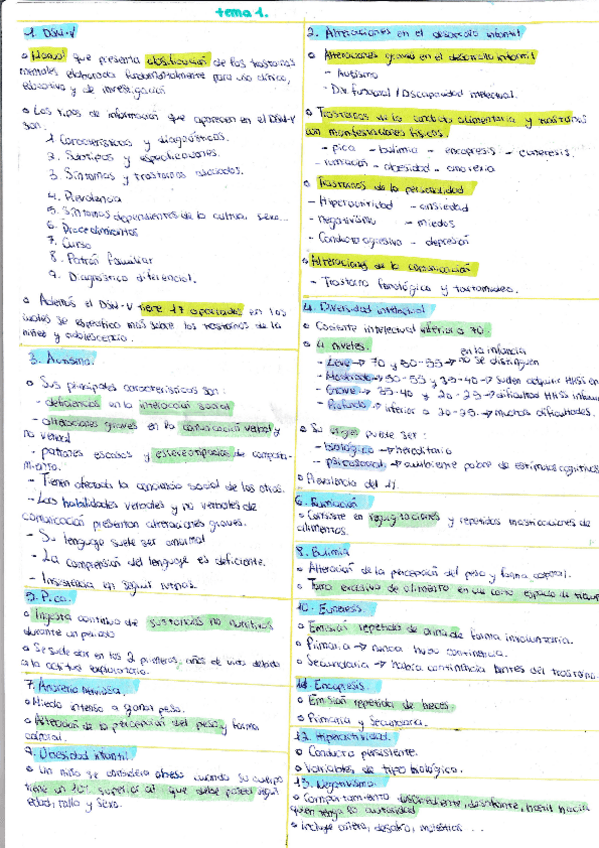 tema 1.
1. DSM-V
Manual que presenta clasificación de los trastornos
mentales elaborada fundamentalmente para uso clínico,
educativo y de investigación
Los tipos de información que aparecen en el DSM-V
son:
1. Características y diagnósticos.
2. Subtipos y especificaciones.
3. Síntomas y trastornos asociados.
4. Prevalencia
5. Síntomas dependientes de la cultura, sexo...
6. Procedimientos
7. Curso
8. Patrón familiar
9. Diagnóstico diferencial.
Además el DSM-V tiene 17 apartados en los
cuales se especifica más sobre los trastornos de la
niñez y adolescencia.
3. Autismo.
Sus principales características son:
- deficiencias en la interacción social
- alteraciones graves en la comunicación verbal y
no verbal
- patrones escasos y estereotipados de comporta-
miento.
- Tienen afectada la conciencia social de los otros.
- Las habilidades verbales y no verbales de
comunicación presentan alteraciones graves.
- Su lenguaje suele ser anormal
- La comprensión del lenguaje es deficiente.
- Insistencia en seguir rutinas.
5. Pica.
Ingesta continua de sustancias no nutritivas
durante un periodo
Se suele dar en los 2 primeros años de vida debido
a la actitud exploratoria.
7. Anorexia nerviosa.
Miedo intenso a ganar peso.
Alteración de la percepción del peso y forma
corporal.
9. Obesidad infantil.
Un niño se considera obeso cuando su cuerpo
tiene un 10% superior al que debe poseer según
edad, talla y sexo.
2. Alteraciones en el desarrollo infantil
Alteraciones graves en el desarrollo infantil
- Autismo
- Div. funcional / Discapacidad intelectual.
Trastornos de la conducta alimentaria y trastornos
con manifestaciones físicas
- pica - bulimia - encopresis - enuresis.
- rumiación - obesidad - anorexia
Trastornos de la personalidad
- Hiperactividad - ansiedad
- negativismo - miedos
- Conducta agresiva - depresión
Alteraciones de la comunicación
- Trastorno fonológico y tartamudeo.
4. Diversidad intelectual
Cociente intelectual inferior a 70.
4 niveles.
- Leve → 70 y 50-55 → en la infancia no se distinguen
- Moderado → 50-55 y 35-40 → Suelen adquirir HHSS en
- Grave → 35-40 y 20-25 → dificultad HHSS infan
- Profundo → inferior a 20-25 → muchas dificultades.
Su origen puede ser:
- biológico → hereditario
- psicosocial → ambiente pobre de estímulos cognitivos
Prevalencia del 1%.
6. Rumiación
Consiste en regurgitaciones y repetidas masticaciones de
alimentos.
8. Bulimia
Alteración de la percepción del peso y forma corporal.
Toma excesiva de alimento en un corto espacio de tiempo
10. Enuresis.
Emisión repetida de orina de forma involuntaria.
Primaria → nunca hubo continencia.
Secundaria → había continencia antes del trastorno.
11. Encopresis.
Emisión repetida de heces
Primaria y Secundaria.
12. Hiperactividad.
Conducta persistente.
Variables de tipo biológico.
13. Negativismo.
Comportamiento desobediente, desafiante, hostil hacia
quien tenga la autoridad
incluye cólera, desafío, molestias...